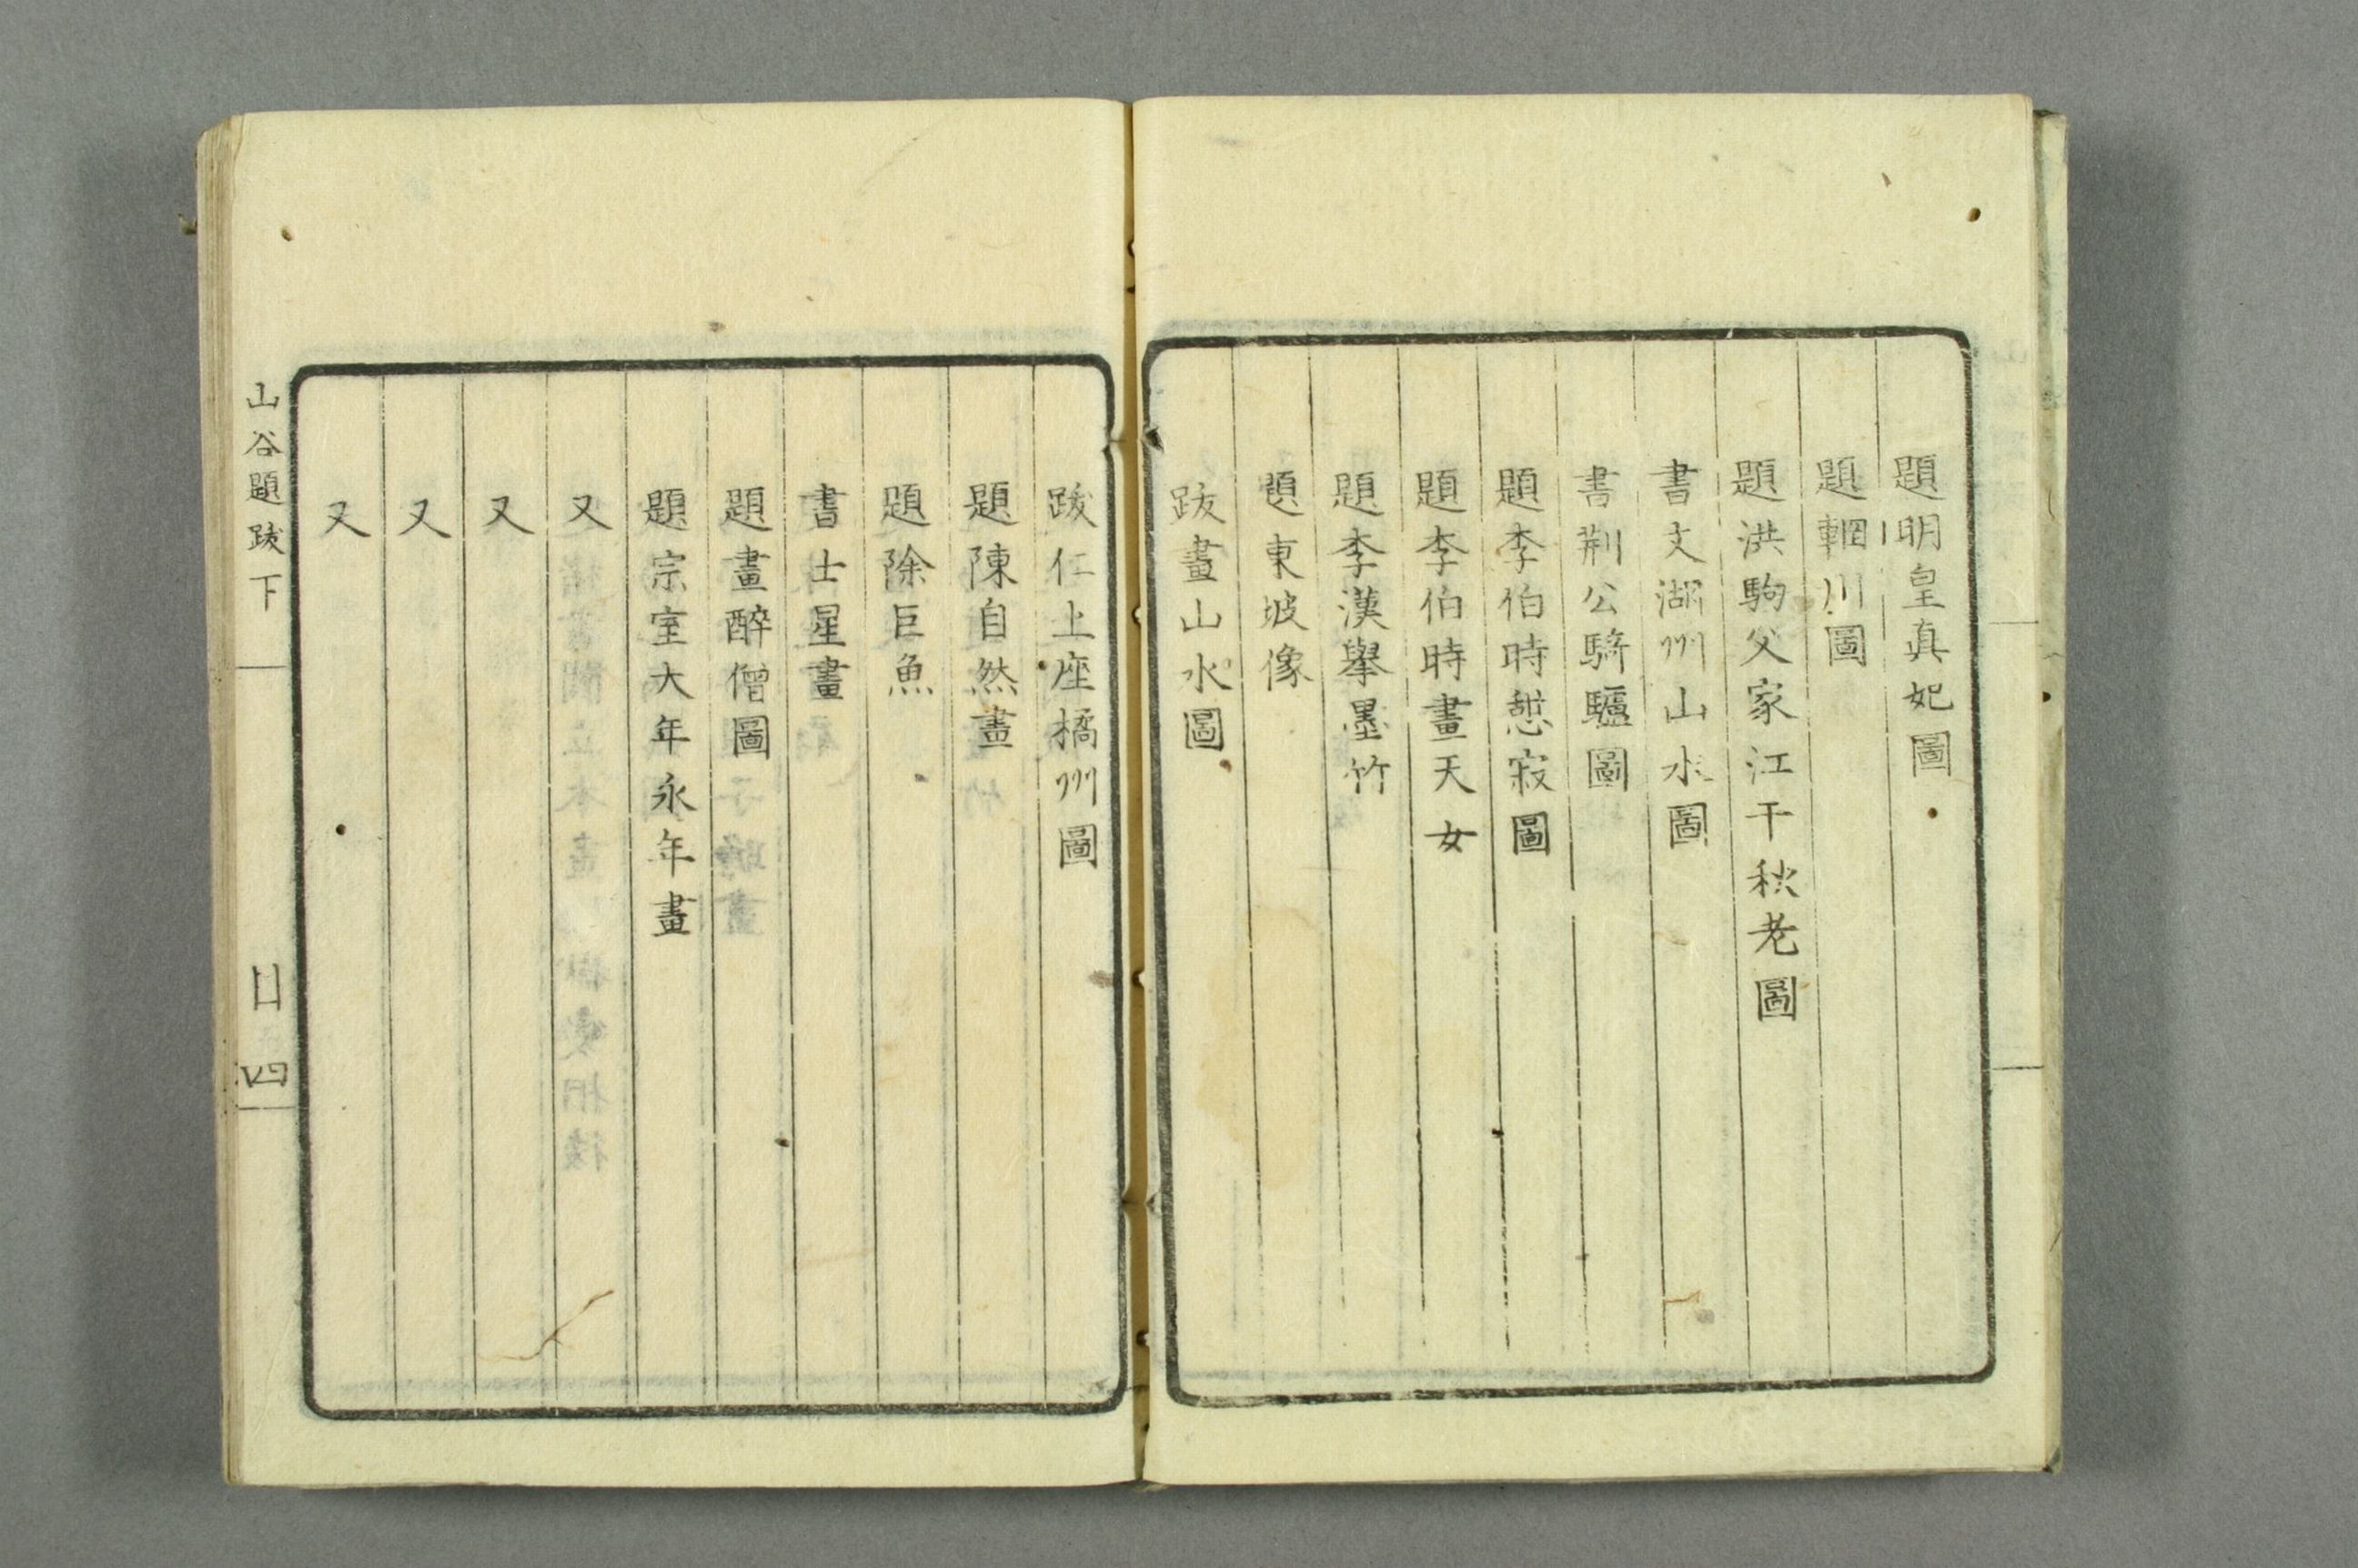 題明皇真妃圖
題輞川圖
題洪駒父家江干秋老圖
書文湖州山水圖
書荆公騎驢圖
題李伯時憩寂圖
題李伯時畫天女
題李漢舉墨竹
題東坡像
跋畫山水圖
跋仁上座橘州圖
題陳自然畫
題除巨魚
書士星畫
題畫醉僧圖
題宗室大年永年畫
又
又
又
又
山谷題跋下
廿四